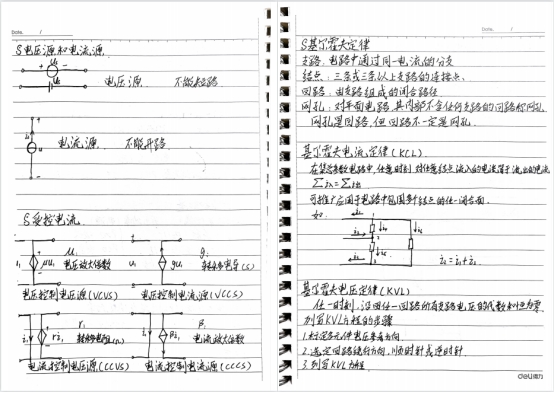 Date. /
§电压源和电流源
Us
电压源 不能短路
电流源 不能开路
§受控电流
μ: 
μu₁ 电压放大倍数
u₁ gu₁ 转移电导(S)
电压控制电压源(VCVS) 电压控制电流源(VCCS)
r: β:
i₁ ri₁ 转移电阻 βi₁ 电流放大倍数
电流控制电压源(CCVS) 电流控制电流源(CCCS)
Date. /
§基尔霍夫定律
支路:电路中通过同一电流的分支
结点:三条或三条以上支路的连接点
回路:由支路组成的闭合路径
网孔:对平面电路,其内部不含任何支路的回路称网孔
网孔是回路,但回路不一定是网孔
基尔霍夫电流定律(KCL)
在集总参数电路中,任意时刻 对任意结点流入的电流等于流出的电流
可推广应用于电路中包围多个结点的任一闭合面
如:
基尔霍夫电压定律(KVL)
任一时刻,沿回任一回路所有支路电压的代数和恒为零
列写KVL方程的步骤
1.标定各元件电压参考方向
2.选定回路绕行方向,顺时针或逆时针
3.列写KVL方程
deli得力